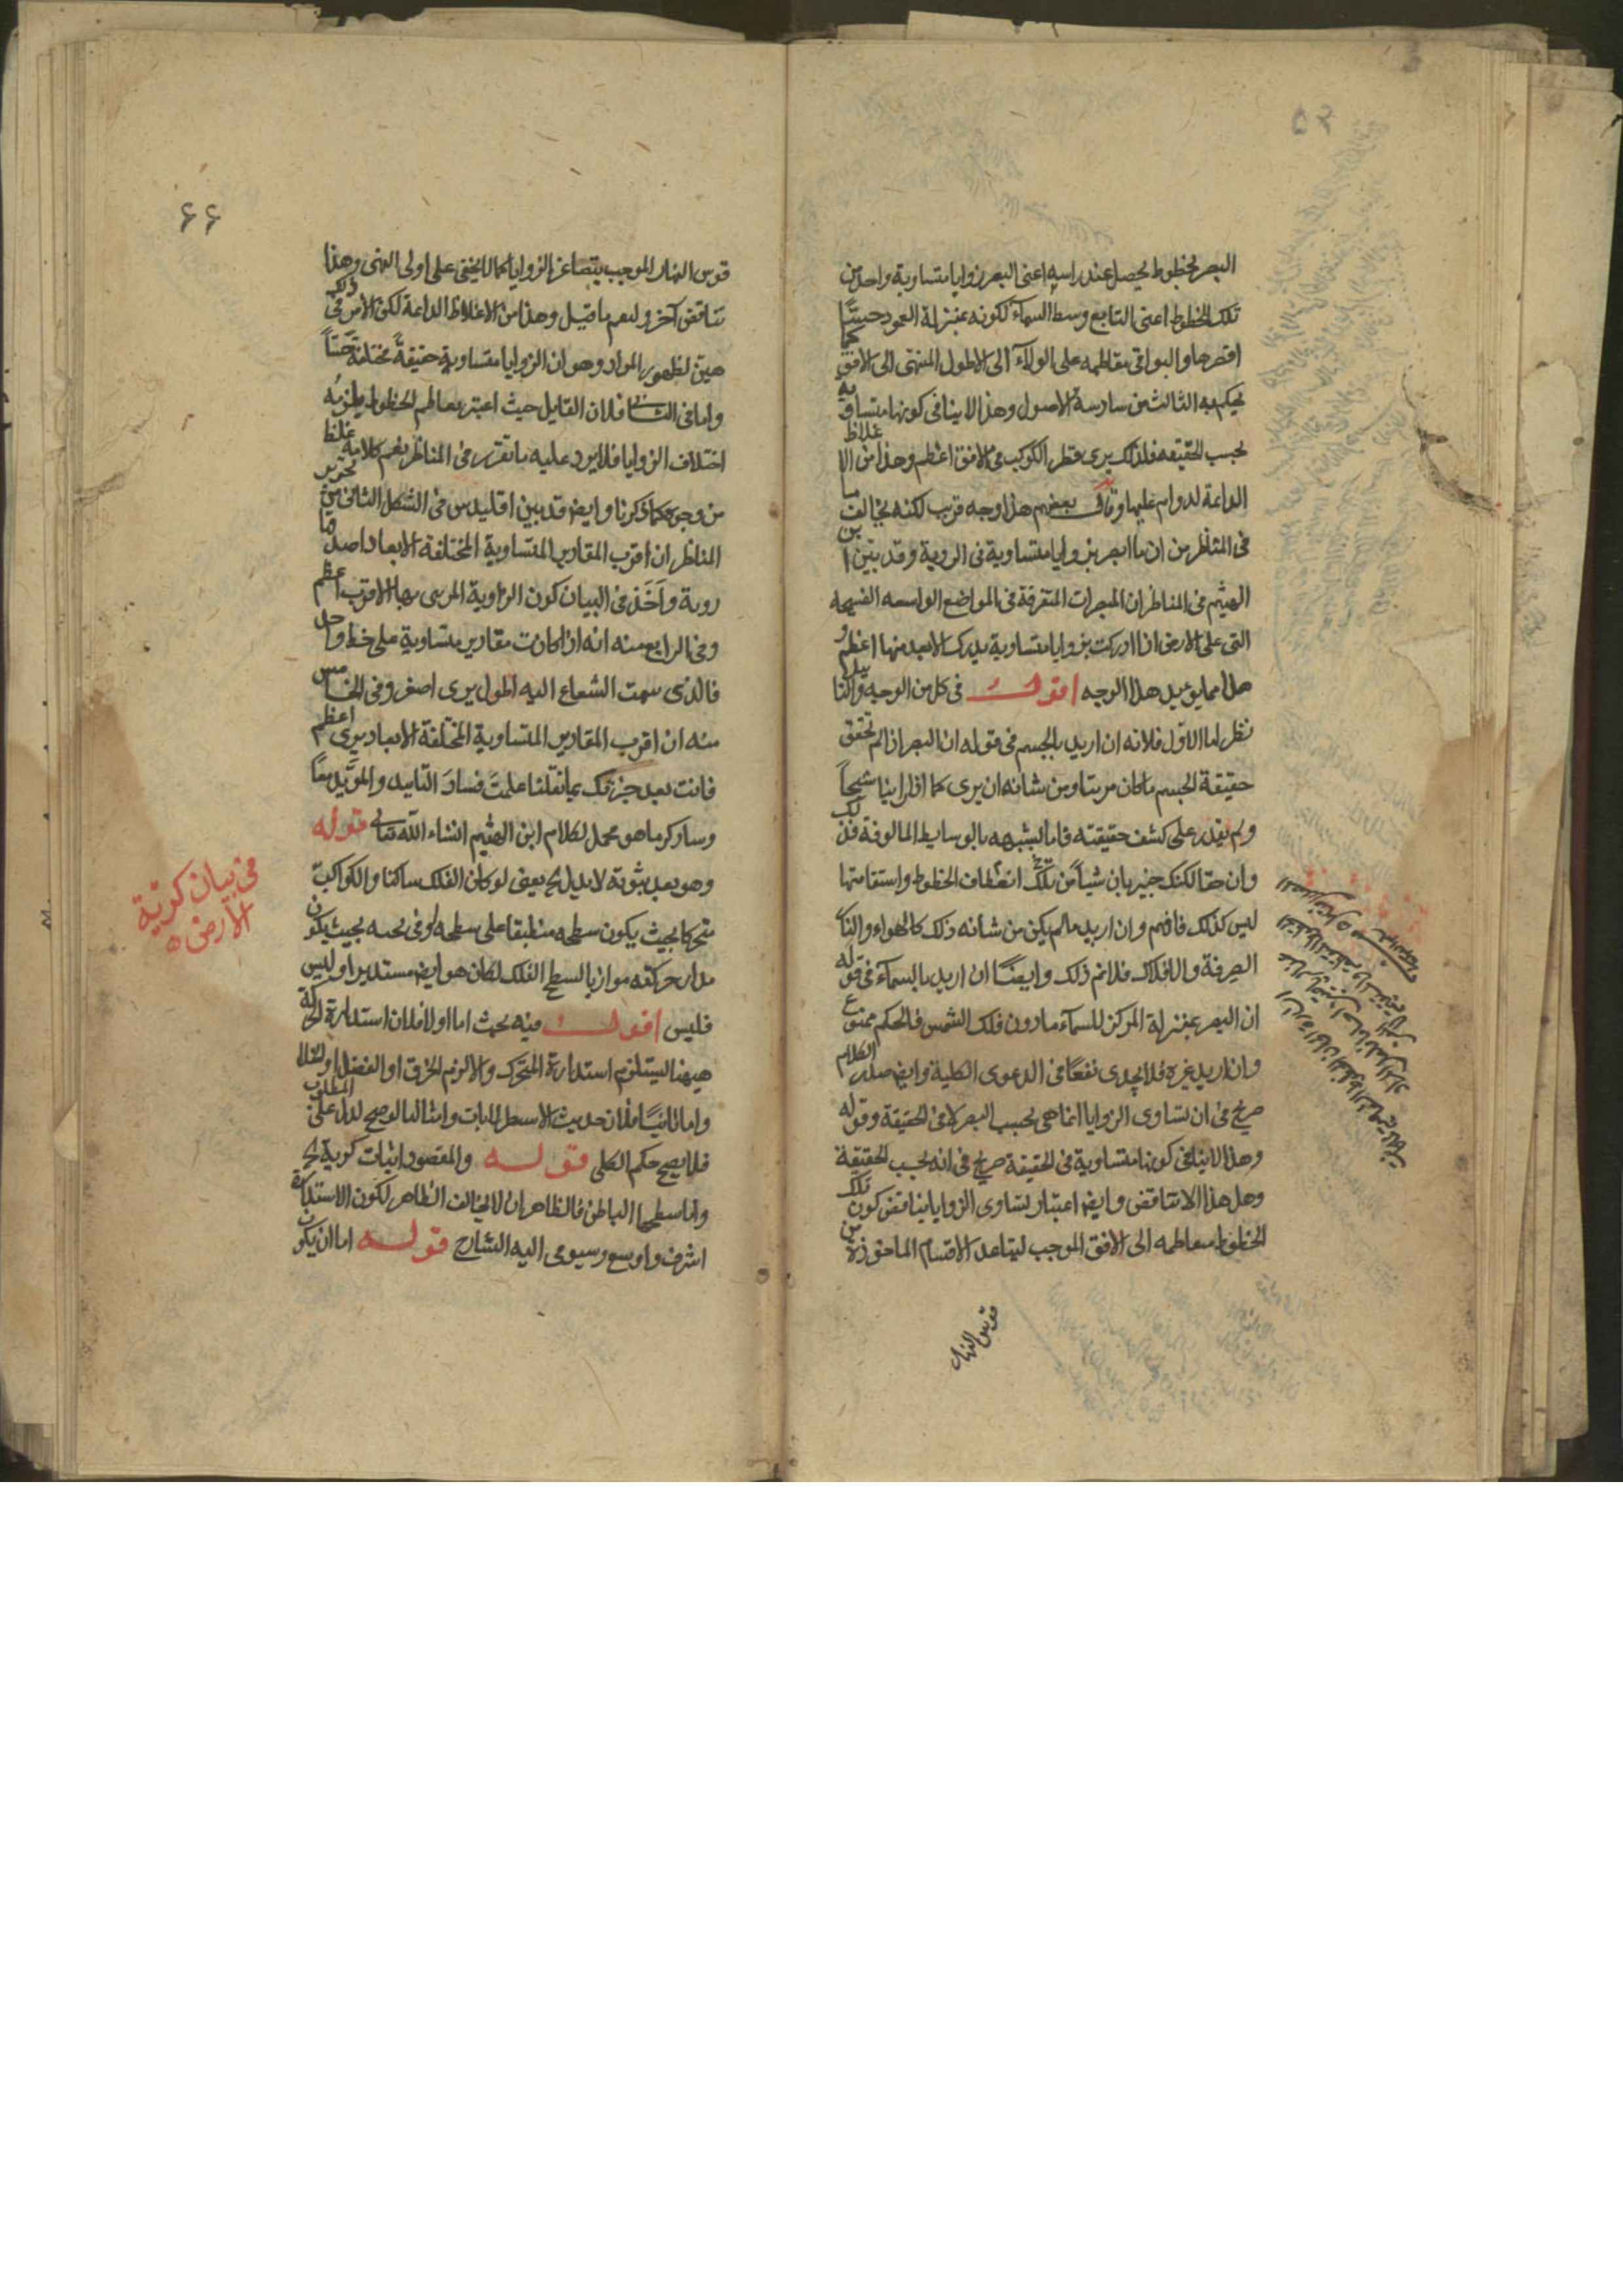 ٥٢
البصر بخطوط يحصل عند راسه اعنى البصر زوايا متساوية واحد من
تلك الخطوط اعنى التابع وسط السماء لكونه بمنزلة العمود حينئذ
اقصرها والبواقى متعاظمه على الولاء الى الاطول المنتهى الى الافق كما
يحكم به الثالث من سادسة الاصول وهذا لا ينافى كونها متساويه
بحسب الحقيقه فلذلك يرى قطر الكوكب فى الافق اعظم وهذا من الاغلاط
الداعمة لدوام عليها وقال بعضهم هذا وجه قريب لكنه يخالف ما
فى المناظر من ان ما ابصر بزوايا متساوية فى الروية وقد بين ابن
الهيثم فى المناظر ان المبصرات المتفرقة فى المواضع الواسعه الفسيحه
التى على الارض اذا ادركت بزوايا متساوية يدرك الابعد منها اعظم و
هذا مما يؤيد هذا الوجه اقول فى كل من الوجه والتاييد
نظر اما الاول فلانه ان اريد بالجسم فى قوله ان البصر اذا لم تحقق
حقيقة الجسم ما كان مرئيا ومن شانه ان يرى كما اذا راينا شبحاً
ولم يقدر على كشف حقيقته فاما لشبهه بالوسايط المالوفة فذلك
وان حقا لكنك خبير بان شيأ من تلك انعطاف الخطوط واستقامتها
ليس كذلك فافهم وان اريد ما لم يكن من شانه ذلك كالهواء والنار
الصرفة والافلاك فلا نم ذلك وايضًا ان اريد بالسماء فى قوله
ان البصر بمنزلة المركز للسماء ما دون فلك الشمس فالحكم ممنوع
وان اريد غيره فلا يجدى نفعًا فى الدعوى الكلية وايضا صدر الكلام
صريح فى ان تساوى الزوايا انما هى بحسب البصر لا فى الحقيقة وقوله
وهذا لا ينافى كونها متساوية فى الحقيقة صريح فى انه بحسب الحقيقة
وهل هذا الا تناقض وايضا اعتبار تساوى الزوايا يناقض كون تلك
الخطوط متعاظمه الى الافق الموجب لتباعد الاقسام الماخوذة من
قوس النهار
٦٦
قوس النهار الموجب بتصاغر الزوايا كما لا يخفى على اولى النهى وهذا
تناقض آخر ولنعم ما قيل وهذا من الاغلاط الداعة لكن الامر فى ذلك
هين لظهور المراد وهو ان الزوايا متساوية حقيقةً مختلفة حسّاً
واما فى الثانى فلان القايل حيث اعتبر تعاظم الخطوط يلزمه
اختلاف الزوايا فلا يرد عليه ما تقرر فى المناظر نعم كلامه غلط
من وجوه كما ذكرنا وايضا قد بين اقليدس فى الشكل الثانى من تحرير
المناظر ان اقرب المقادير المتساوية المختلفة الابعاد اصدقها
روية وآخَذَ فى البيان كون الزاوية المرئى بها الاقرب اعظم
وفى الرابع منه انه اذا كانت مقادير متساوية على خط واحد
فالذى سمت الشعاع اليه اطول يرى اصغر وفى الخامس
منه ان اقرب المقادير المتساوية المختلفة الابعاد يرى اعظم
فانت بعد خبرتك بما نقلنا علمتَ فسادَ التاييد والمؤيد معًا
وساذكر ما هو محمل لكلام ابن الهيثم انشاء الله تعالى قوله
وهو بعد ثبوته لا يدل الخ يعنى لو كان الفلك ساكنا والكواكب
متحركا بحيث يكون سطحه منطبقا على سطحه او فى ثخنه بحيث يكون
مدار حركته موازيا لسطح الفلك لكان هو ايضا مستديرا وليس
فليس اقول فيه بحث اما اولا فلان استدارة الحركة
ههنا ليستلزم استدارة المتحرك والا لزم الخرق او الفصل او الخلا
واما ثانيًا فلان حديث الاسطرلابات وامثالها لو صح لدل على المطلوب
فلا يصح حكم الكلى قوله والمقصود اثبات كرية الخ
واما سطحها الباطن فالظاهر ان لا يخالف الظاهر لكون الاستدارة
اشرف واوسع وسيومى اليه الشارح قوله اما ان يكون
فى بيان كرية
الارض